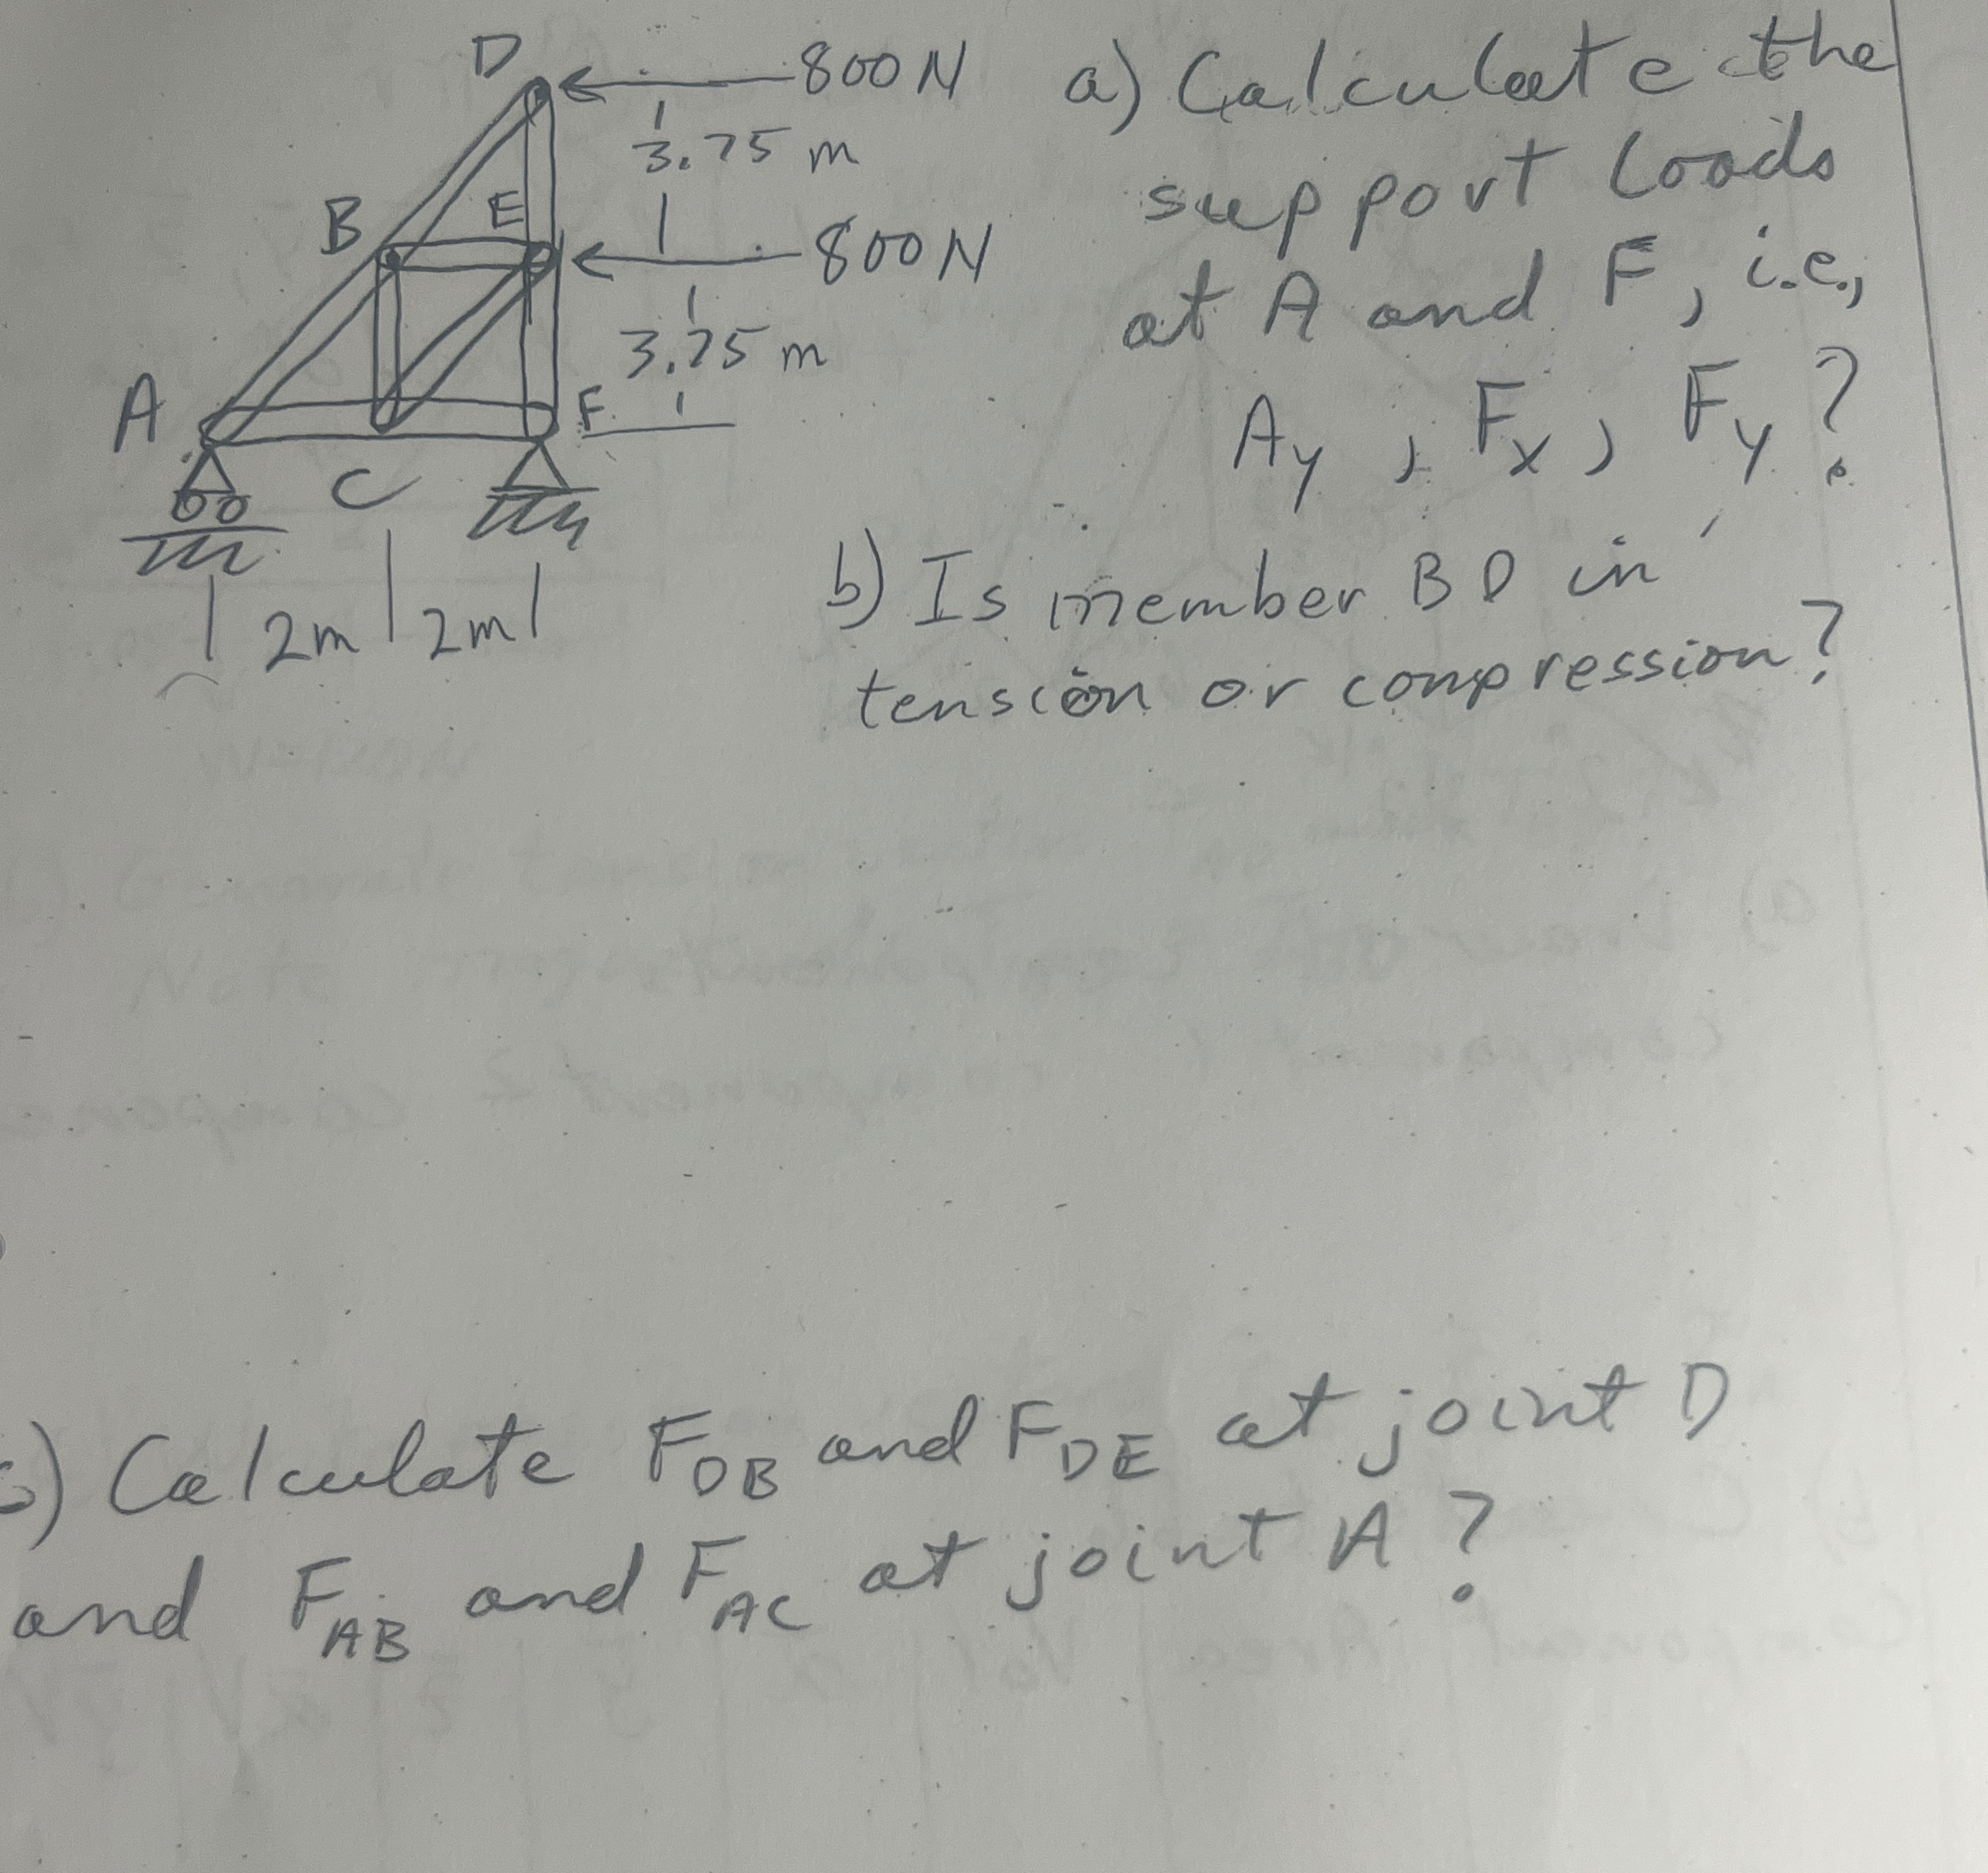 D
800 N
3.75 m
B
E
800 N
3.75 m
A
F
C
2m
2m
a) Calculate the
support loads
at A and F, i.e.,
Ay, Fx, Fy?
b) Is member BD in
tension or compression?
c) Calculate FDB and FDE at joint D
and FAB and FAC at joint A?